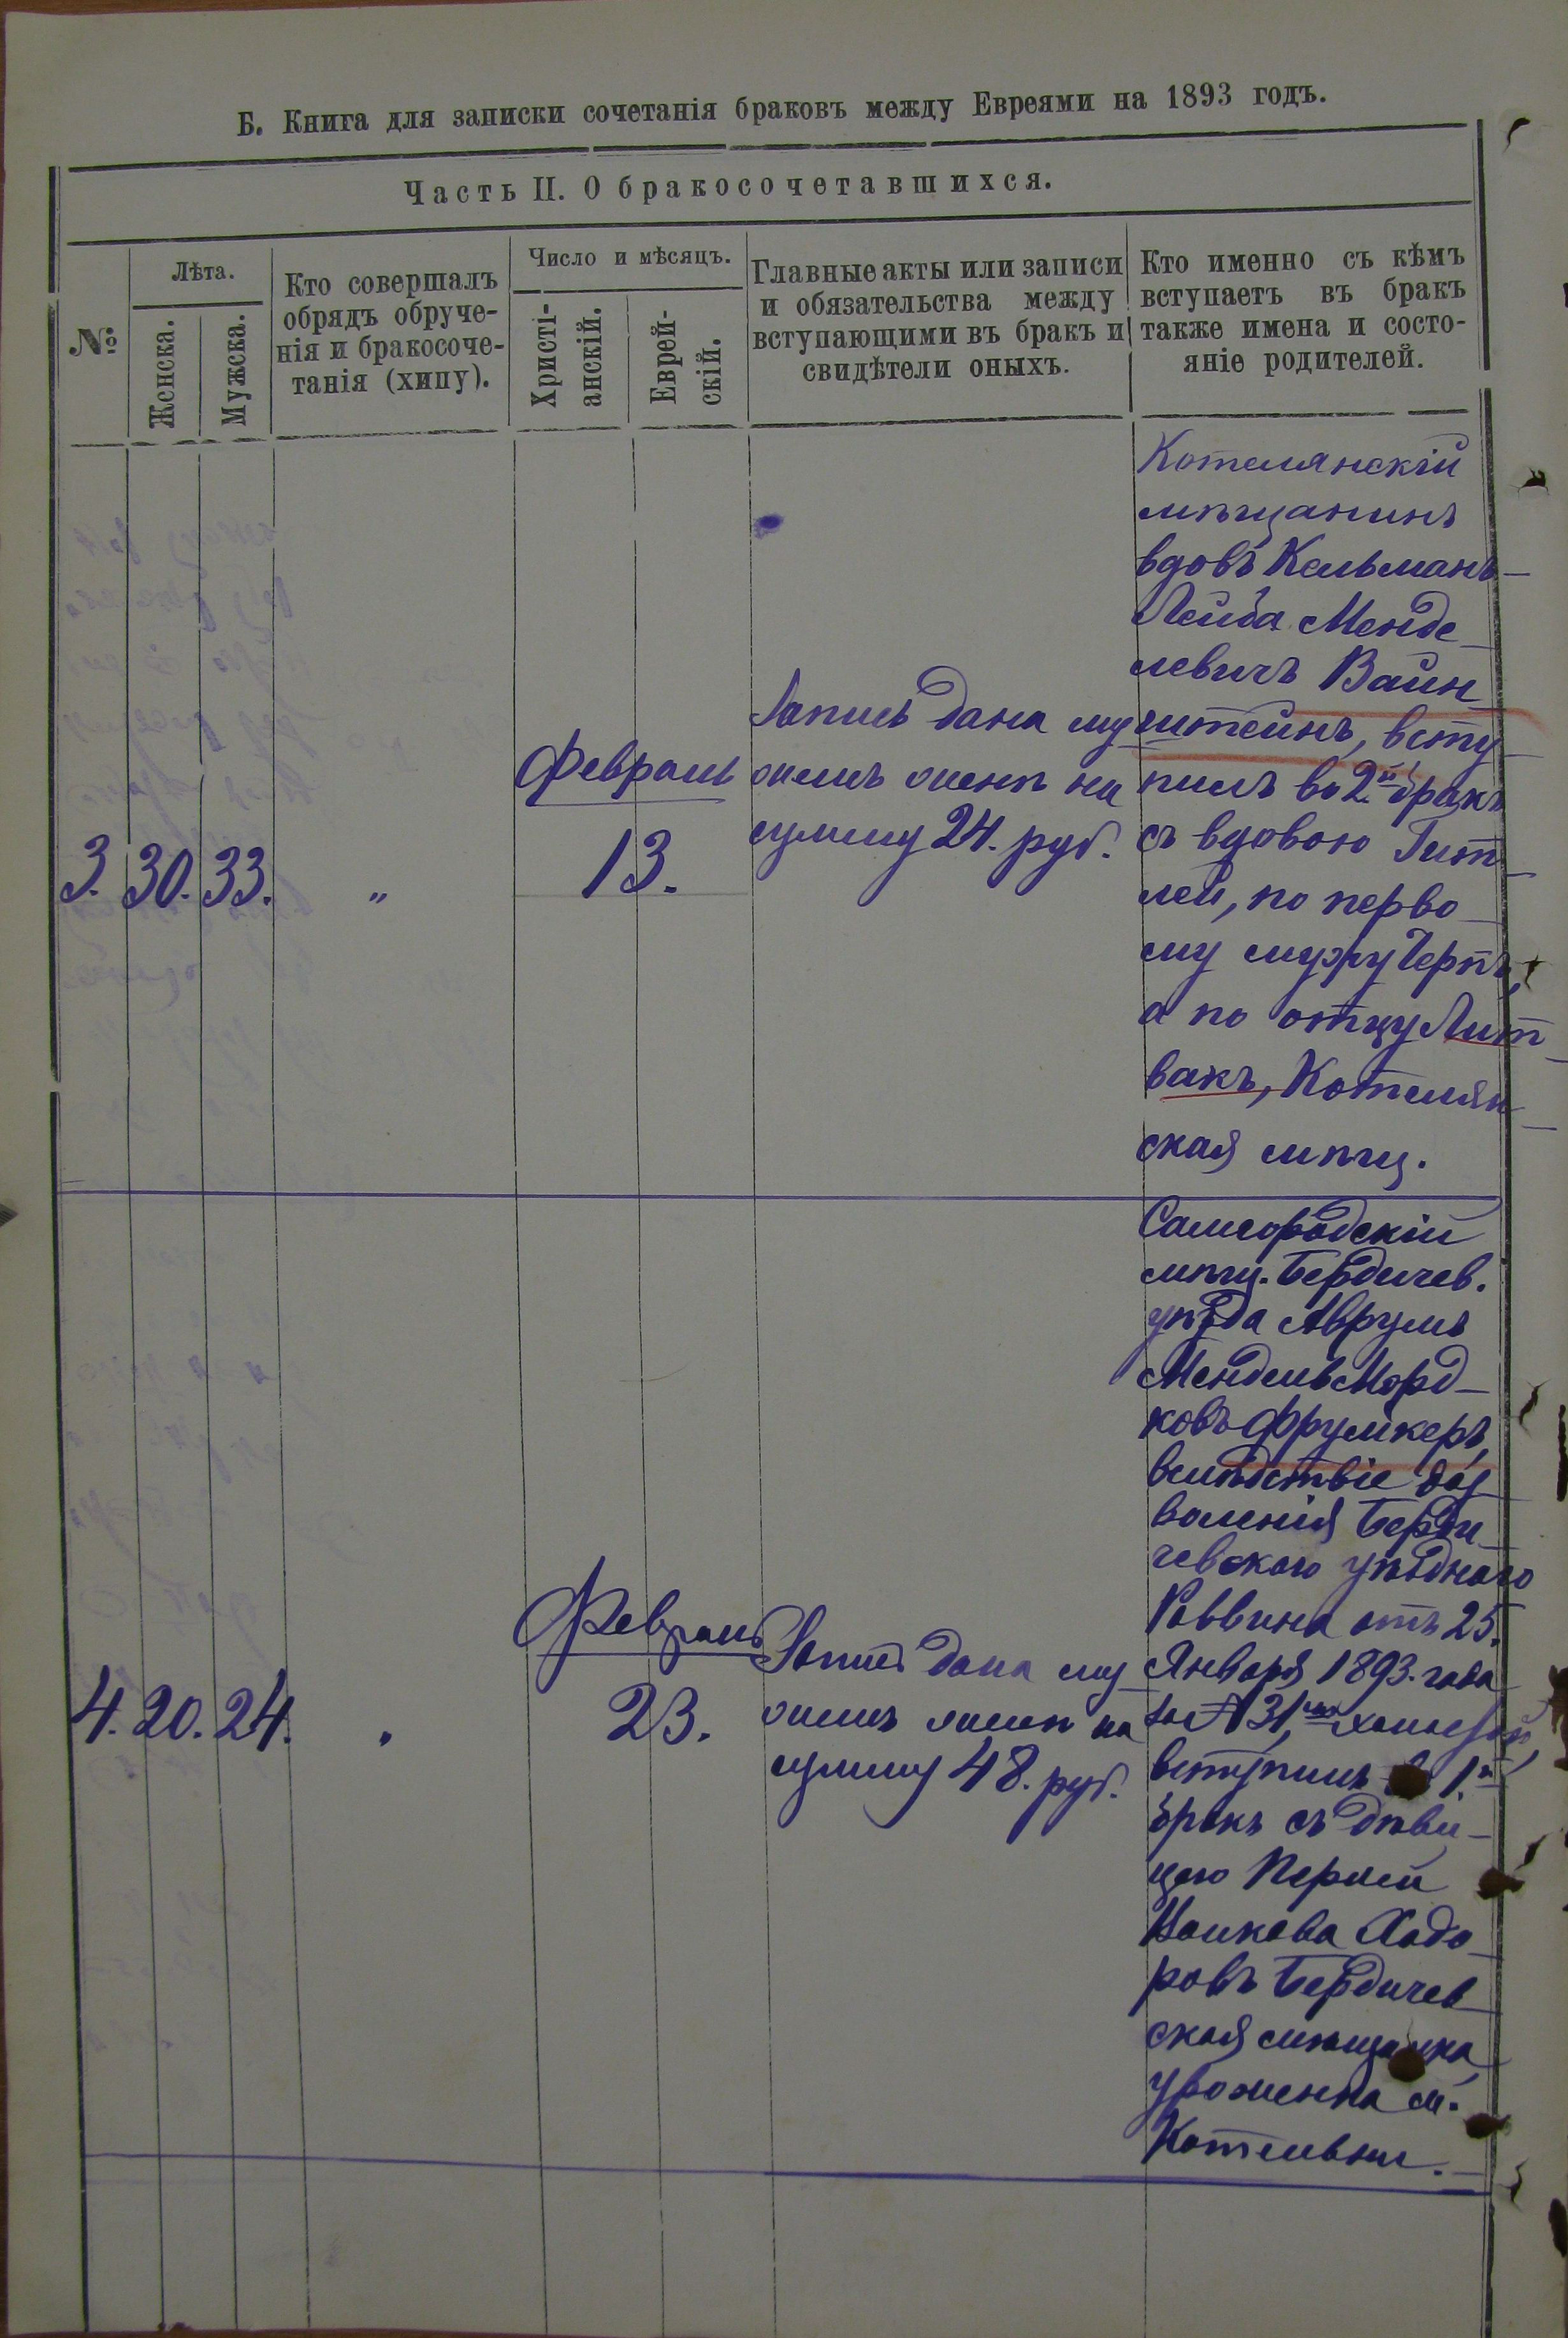 Б. Книга для записки сочетанія браковъ между Евреями на 1893 годъ.
Часть II. О бракосочетавшихся.
№
Лѣта.
Женска.
Мужска.
Кто совершалъ
обрядъ обруче-
нія и бракосоче-
танія (хипу).
Число и мѣсяцъ.
Христі-
анскій.
Еврей-
скій.
Главные акты или записи
и обязательства между
вступающими въ бракъ и
свидѣтели оныхъ.
Кто именно съ кѣмъ
вступаетъ въ бракъ
также имена и состо-
яніе родителей.
3. 30. 33. "
Февраль
13.
Запись дана му
жемъ женѣ на
сумму 24. руб.
Котелянскій
мѣщанинъ
вдовъ Кельманъ-
Лейба Менде
левичъ Вайн
штейнъ, всту
пилъ во 2й бракъ
съ вдовою Гит
лей, по перво
му мужу Чернъ,
а по отцу Лит
вакъ, Котелян
ская мѣщ.
4. 20. 24. "
Февраль
23.
Запись дана му
жемъ женѣ на
сумму 48. руб.
Самгородскій
мѣщ. Бердичев.
уѣзда Аврумъ
Мендель Морд-
ковъ Фрумкеръ,
вслѣдствіе доз
воленія Берди
чевскаго уѣзднаго
Раввина отъ 25.
Января 1893. года
за № 31, холостой,
вступилъ 1й
бракъ съ дѣви-
цею Перлей
Ходо
ровъ Бердичев
ская мѣщанка,
уроженка м.
Котельни.